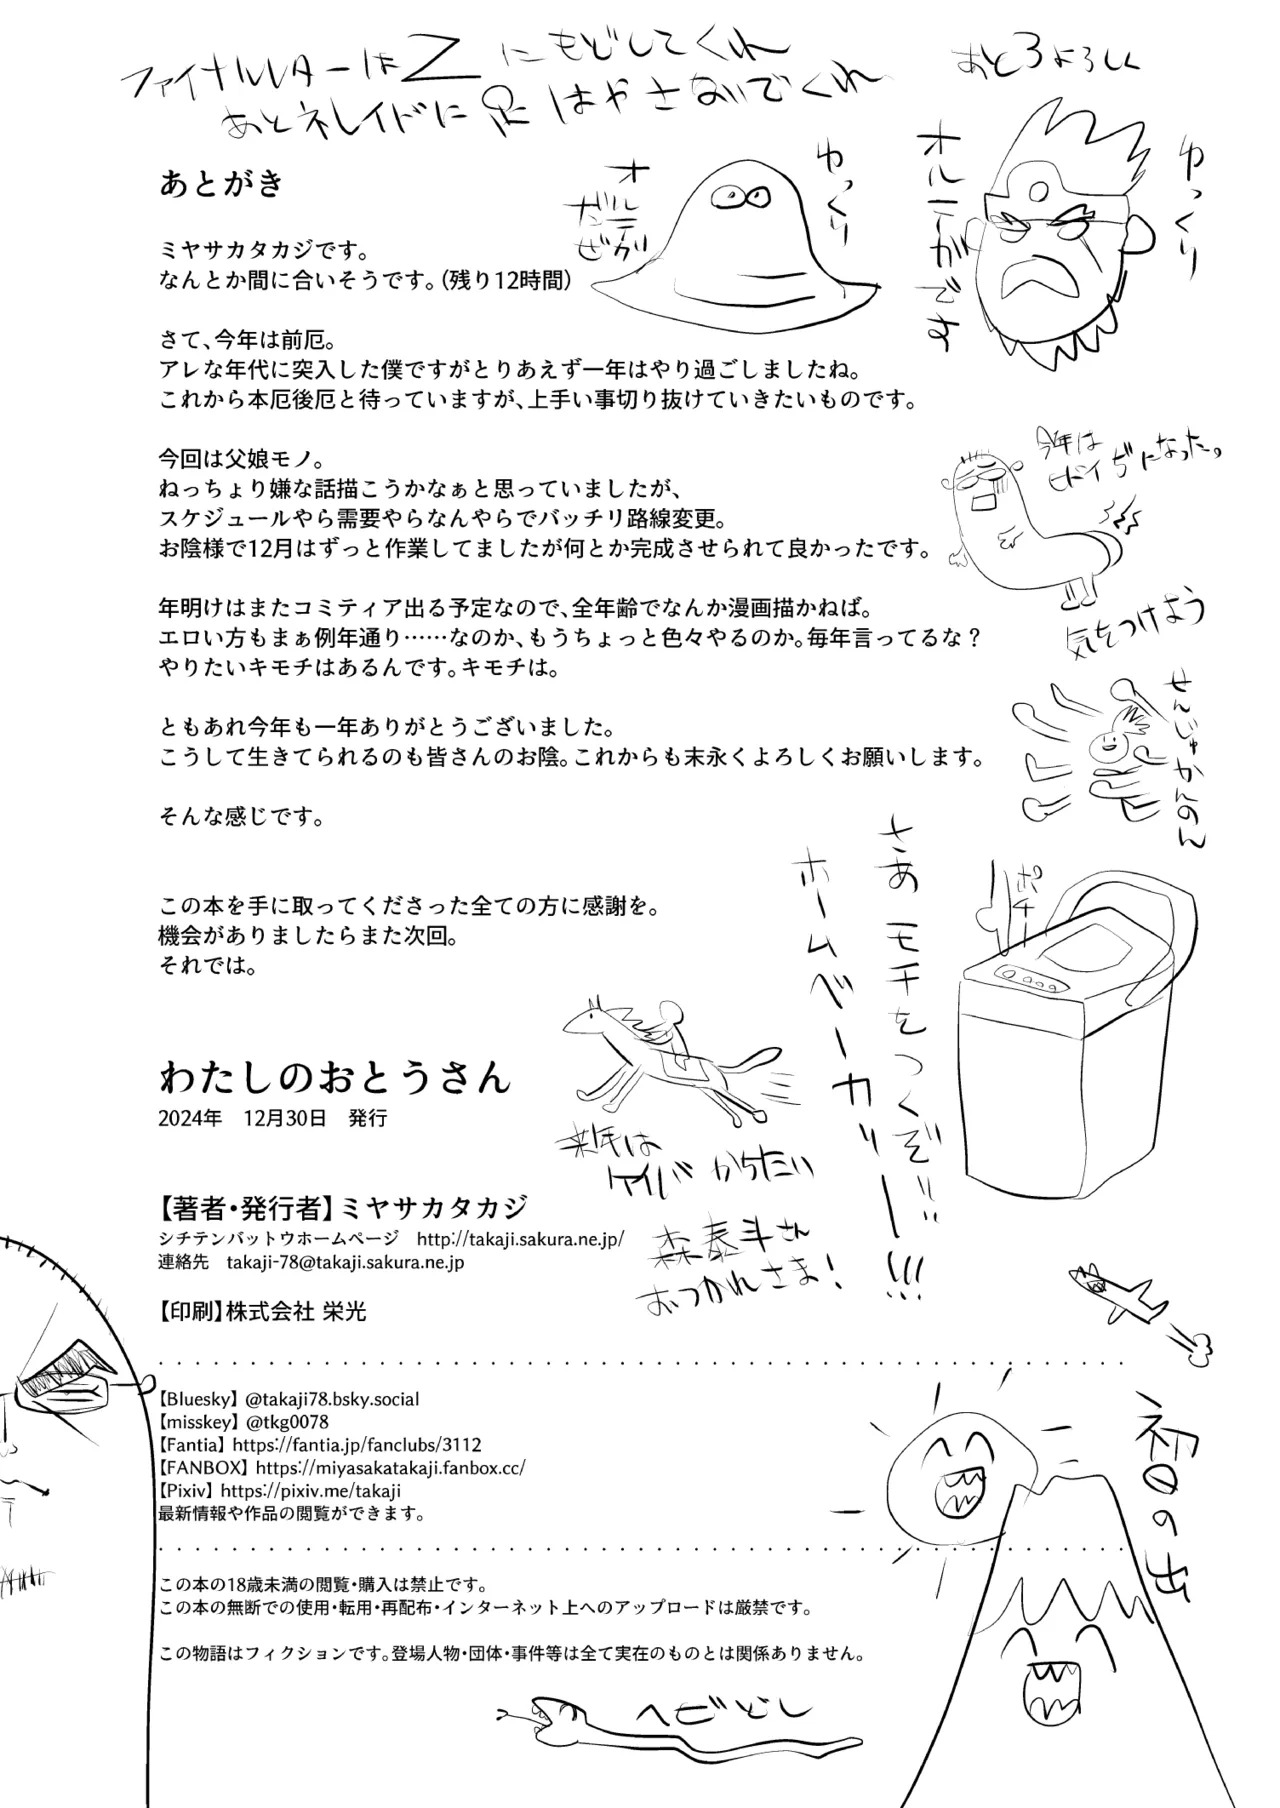 ファイナルレターはZにもどしてくれ
あとネレイドに足はやさないでくれ
あと3よろしく
ゆっくり
オルテガです
ゆっくり
オルテガ
だぜ
あとがき
ミヤサカタカジです。
なんとか間に合いそうです。（残り12時間）
さて、今年は前厄。
アレな年代に突入した僕ですがとりあえず一年はやり過ごしましたね。
これから本厄後厄と待っていますが、上手い事切り抜けていきたいものです。
今回は父娘モノ。
ねっちょり嫌な話描こうかなぁと思っていましたが、
スケジュールやら需要やらなんやらでバッチリ路線変更。
お陰様で12月はずっと作業してましたが何とか完成させられて良かったです。
今年は
ヒドイぢになった。
気をつけよう
年明けはまたコミティア出る予定なので、全年齢でなんか漫画描かねば。
エロい方もまぁ例年通り……なのか、もうちょっと色々やるのか。毎年言ってるな？
やりたいキモチはあるんです。キモチは。
せんじゅかんのん
ともあれ今年も一年ありがとうございました。
こうして生きてられるのも皆さんのお陰。これからも末永くよろしくお願いします。
そんな感じです。
さあ モチをつくぞ!!
ホームベーカリー!!!
ポチ
この本を手に取ってくださった全ての方に感謝を。
機会がありましたらまた次回。
それでは。
わたしのおとうさん
2024年　12月30日　発行
来年は
ケイバ かちたい
森泰斗さん
おつかれさま!
【著者・発行者】ミヤサカタカジ
シチテンバットウホームページ　http://takaji.sakura.ne.jp/
連絡先　takaji-78@takaji.sakura.ne.jp
【印刷】株式会社 栄光
【Bluesky】@takaji78.bsky.social
【misskey】@tkg0078
【Fantia】https://fantia.jp/fanclubs/3112
【FANBOX】https://miyasakatakaji.fanbox.cc/
【Pixiv】https://pixiv.me/takaji
最新情報や作品の閲覧ができます。
初日の出
この本の18歳未満の閲覧・購入は禁止です。
この本の無断での使用・転用・再配布・インターネット上へのアップロードは厳禁です。
この物語はフィクションです。登場人物・団体・事件等は全て実在のものとは関係ありません。
ヘビどし